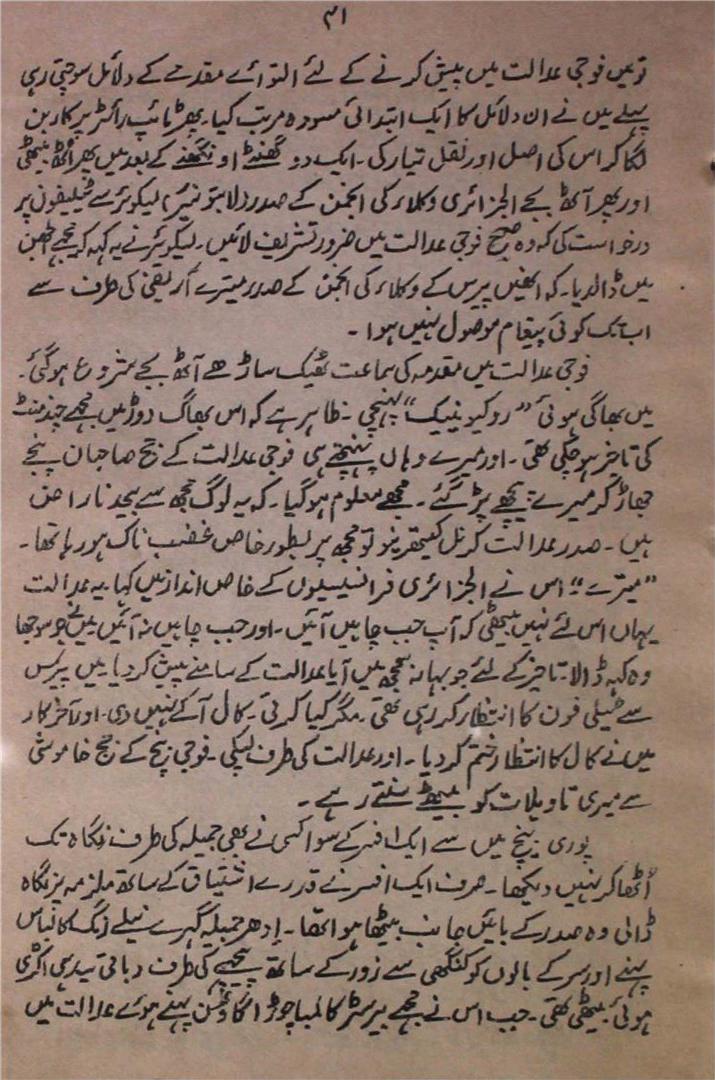 ۳۱
تو میں فوجی عدالت میں پیش کرنے کے لئے التوائے مقدمے کے دلائل سوچتی رہی
پہلے میں نے ان دلائل کا ایک ابتدائی مسودہ مرتب کیا۔ پھر ٹائپ رائٹر پر کاربن
لگا کر اس کی اصل اور نقل تیار کی۔ ایک دو گھنٹے اونگھنے کے بعد میں پھر اُٹھ بیٹھی
اور پھر آٹھ بجے الجزائری وکلاء کی انجمن کے صدر لیکوئر سے ٹیلیفون پر
درخواست کی کہ وہ صبح فوجی عدالت میں ضرور تشریف لائیں۔ لیکوئر نے یہ کہہ کر مجھے الجھن
میں ڈالدیا۔ کہ انھیں پیرس کے وکلاء کی انجمن کے صدر میترے کی طرف سے
اب تک کوئی پیغام موصول نہیں ہوا۔
فوجی عدالت میں مقدمہ کی سماعت ٹھیک ساڑھے آٹھ بجے شروع ہوگئی۔
میں بھاگی ہوئی پہنچی۔ ظاہر ہے کہ اس بھاگ دوڑ میں مجھے چند منٹ
کی تاخیر ہو چکی تھی۔ اور میرے وہاں پہنچتے ہی فوجی عدالت کے جج صاحبان پنجے
جھاڑ کر میرے پیچھے پڑ گئے۔ مجھے معلوم ہوگیا۔ کہ یہ لوگ مجھ سے بیحد ناراض
ہیں۔ صدر عدالت کرنل تو مجھ پر بطور خاص غضب ناک ہو رہا تھا۔
”میترے“ اس نے الجزائری فرانسیسیوں کے خاص انداز میں کہا یہ عدالت
یہاں اس لئے نہیں بیٹھی کہ آپ جب چاہیں آئیں۔ اور جب چاہیں نہ آئیں میں نے جو سوجھا
وہ کہہ ڈالا۔ تاخیر کے لئے جو بہانہ سمجھ میں آیا عدالت کے سامنے پیش کر دیا۔ میں پیرس
سے ٹیلی فون کا انتظار کر رہی تھی۔ مگر کیا کرتی۔ کال آکے نہیں دی۔ اور آخر کار
میں نے کال کا انتظار ختم کر دیا۔ اور عدالت کی طرف لپکی۔ فوجی بنچ کے جج خاموشی
سے میری تاویلات کو بیٹھے سنتے رہے۔
پوری بنچ میں سے ایک افسر کے سوا کسی نے بھی جمیلہ کی طرف نگاہ تک
اُٹھا کر نہیں دیکھا۔ صرف ایک افسر نے قدرے اشتیاق کے ساتھ ملزمہ پر نگاہ
ڈالی وہ صدر کے بائیں جانب بیٹھا ہوا تھا۔ اِدھر جمیلہ گہرے نیلے رنگ کا لباس
پہنے اور سر کے بالوں کو کنگھی سے زور کے ساتھ پیچھے کی طرف دباتی سیدھی اکڑی
ہوئی بیٹھی تھی۔ جب اس نے مجھے بیرسٹر کا لمبا چوڑا گاؤن پہنے ہوئے عدالت میں